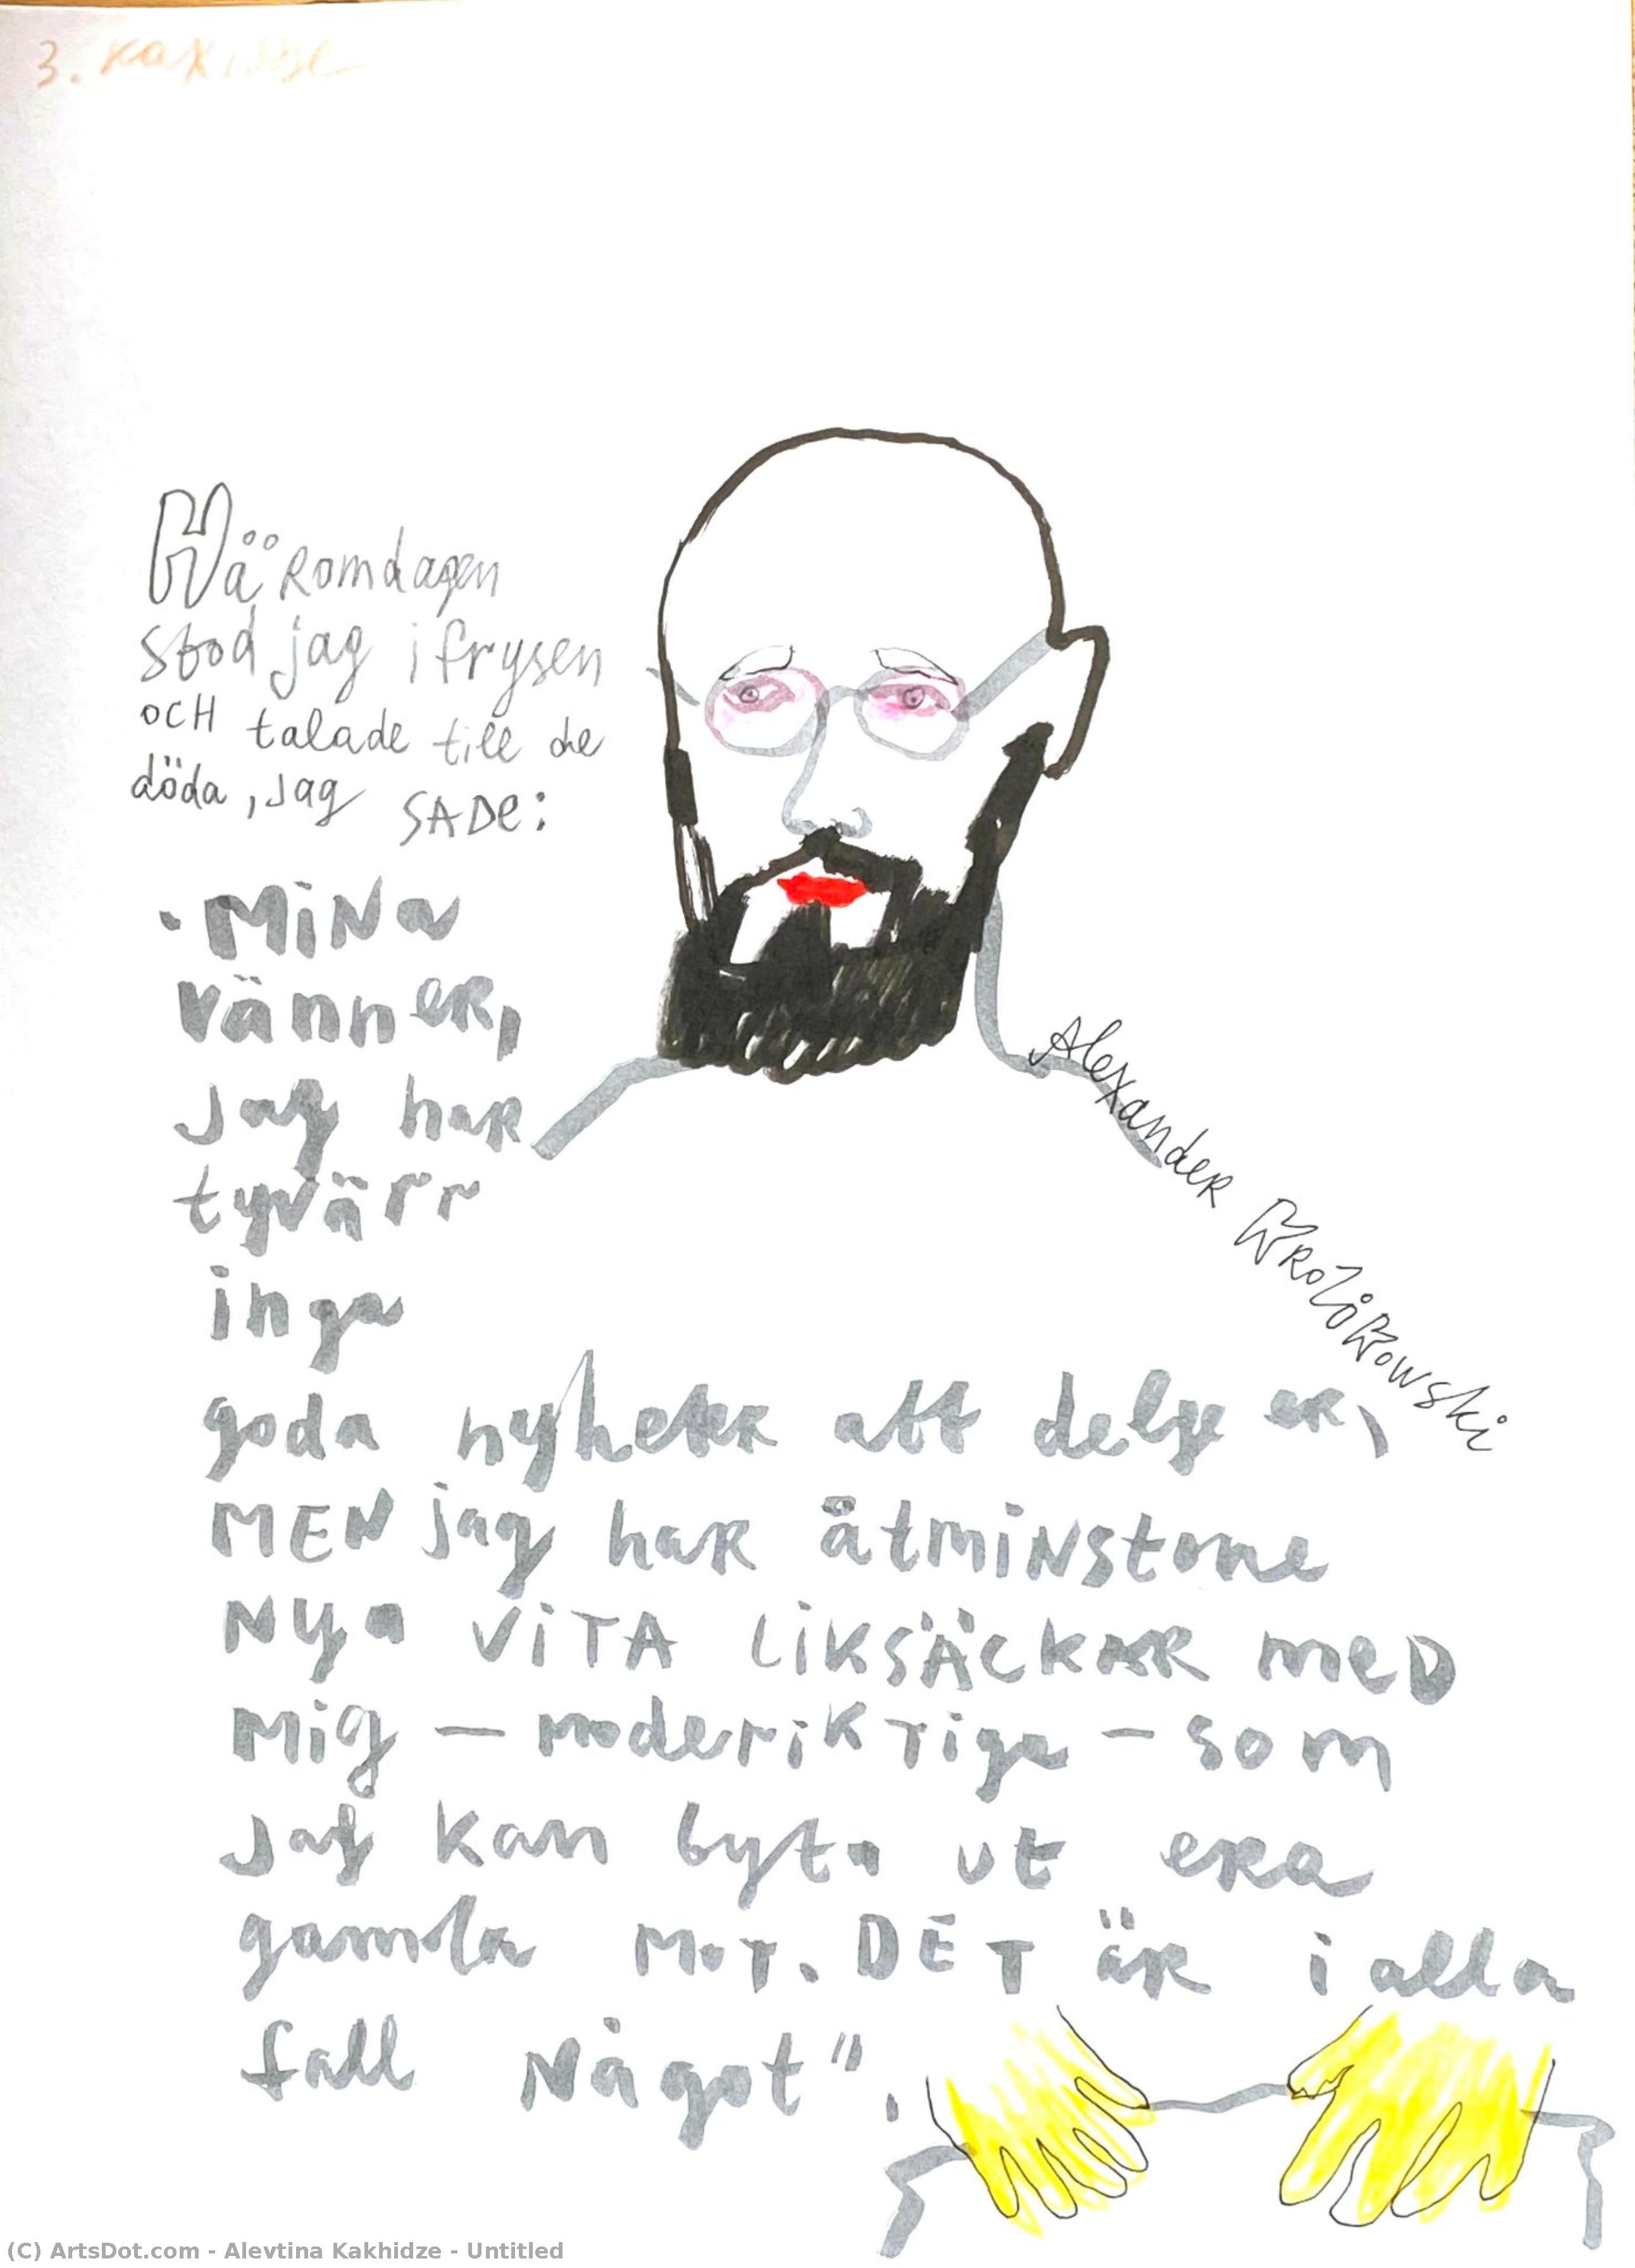 3. Kaxidze
Hääromdagen
stod jag i frysen
OCH talade till de
döda, jag SADE:
"MiNa
vänneR,
jag haR
tyvärr
inga
goda nyheteR att delge eR,
MEN jag haR åtmiNstone
Nya ViTA LiKSÄCKAR meD
Mig – moderiKTiga – som
jag kan byta ut eRa
gamla MoT. DET äR i alla
fall Något".
AlexandeR KRolikowski
(C) ArtsDot.com - Alevtina Kakhidze - Untitled